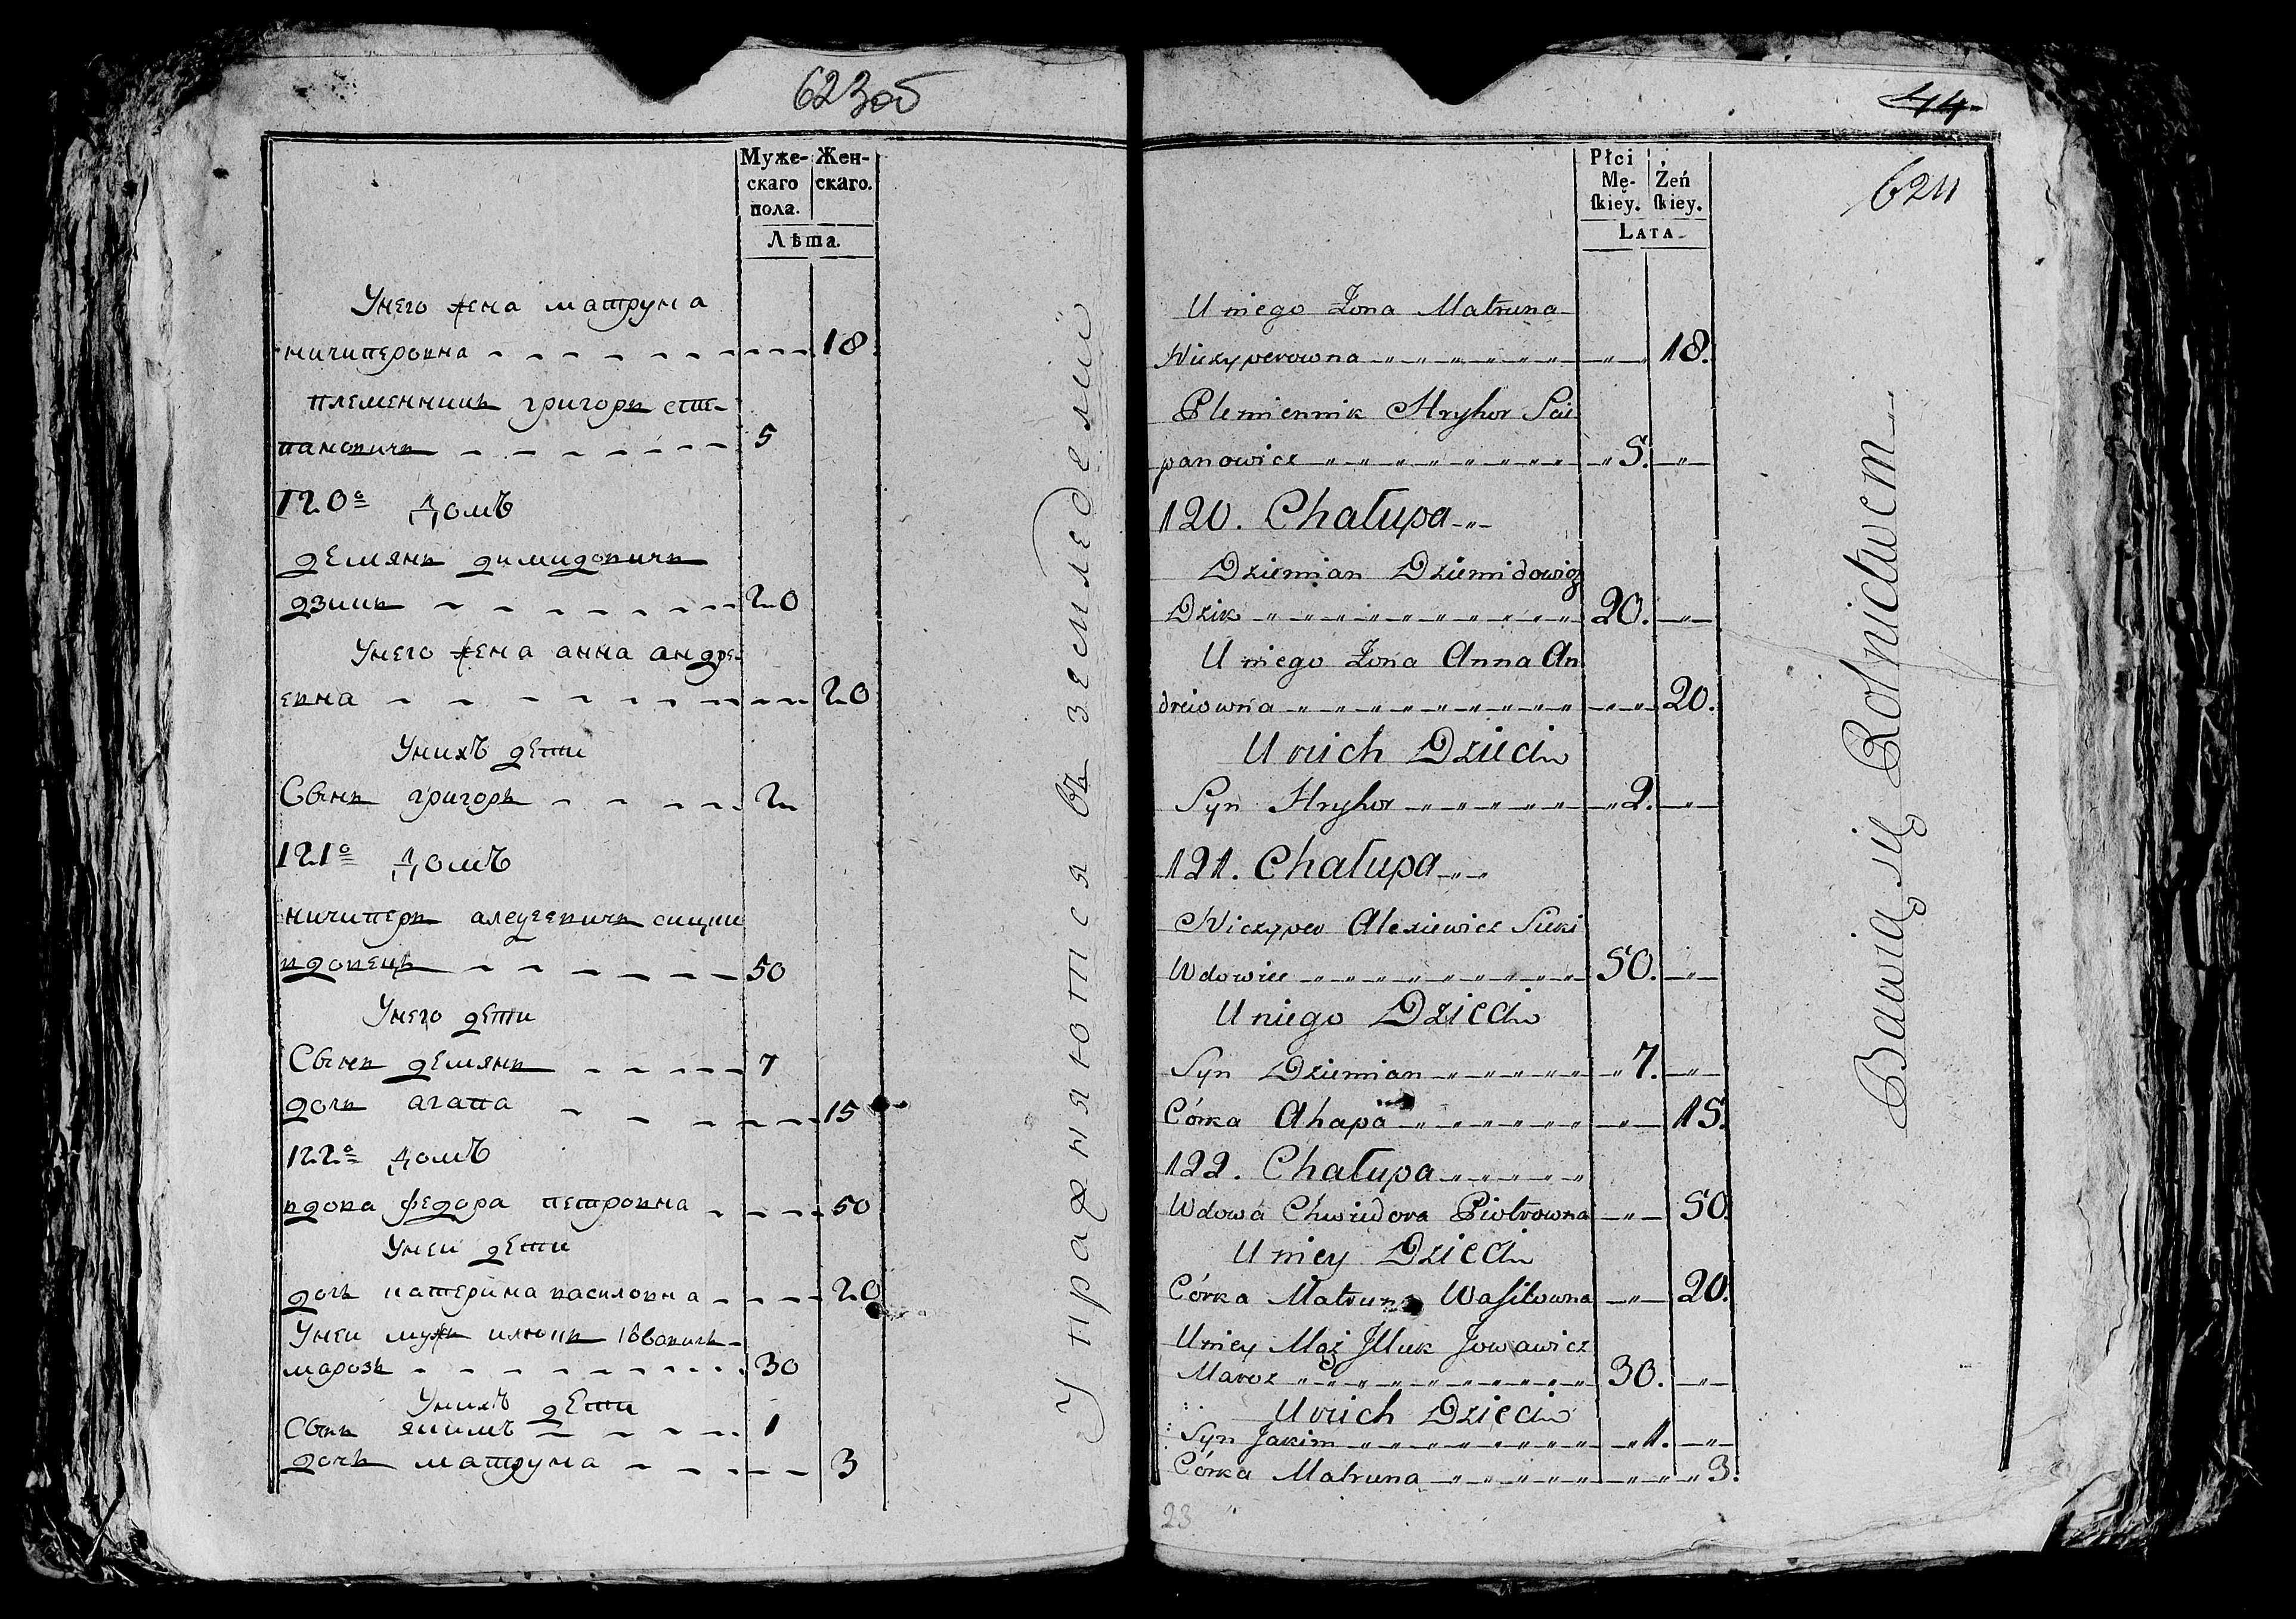 623об
Муже- Жен-
скаго скаго.
пола.
Лѣта.
Унего жена матруна
ничиперовна 18
племенникъ григоръ сте-
пановичъ 5
120е домъ
демянъ димидовичъ
дзикъ 20
Унего жена анна андре-
евна 20
Унихъ дети
Сынъ григоръ 2
121е домъ
ничиперъ алексеевичъ
вдовецъ 50
Унего дети
Сынъ демянъ 7
дочъ агапа 15
122е домъ
вдова федора петровна 50
Унеи дети
дочъ катерина василовна 20
Унеи мужъ илюкъ
марозъ 30
Унихъ дети
Сынъ якимъ 1
дочъ матруна 3
Упражняются въ земледелии
44
624
Płci
Mę- Żeń
skiey. skiey.
LATA
U niego Żona Matruna
Niczyperowna „ 18.
Plemiennik Hryhor Scie
panowicz „ 5. „
120. Chałupa „
Dziemian Dziemidowicz
Dzik „ 20. „
U niego Żona Anna An
dreiowna „ 20.
U nich Dzieci
Syn Hryhor „ 2. „
121. Chałupa „
Niczyper Alexiewicz
Wdowiec „ 50. „
U niego Dzieci
Syn Dziemian „ 7. „
Córka Ahapa „ 15.
122. Chałupa „
Wdowa Chwiedora Piotrowna „ 50.
U niey Dzieci
Córka Matruna Wasilowna „ 20.
U niey Mąż Jlluk Jowawicz
Maroz „ 30. „
U nich Dzieci
Syn Jakim „ 1. „
Córka Matruna „ 3.
Bawią się Rolnictwem
23